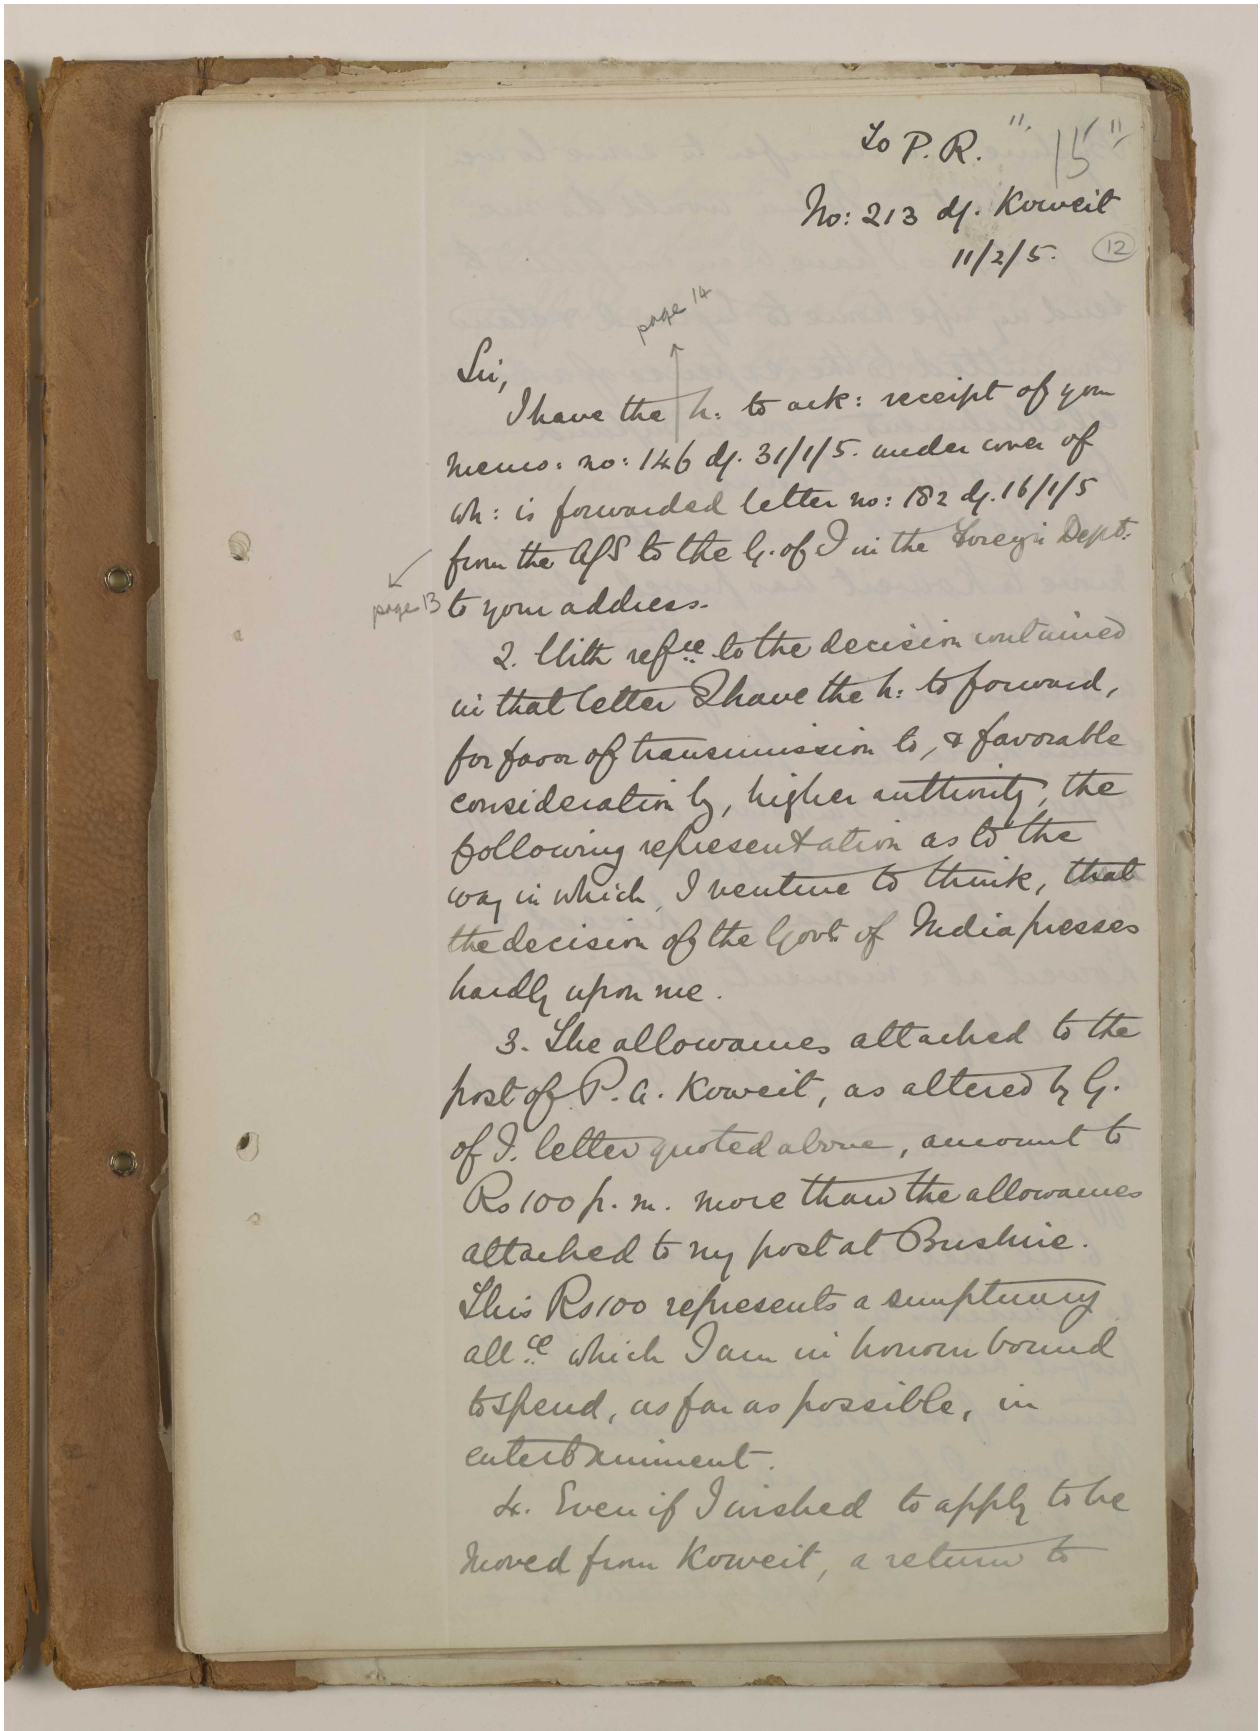 To P. R. " 15 "
No: 213 d/. Koweit
11/2/5. 12
page 14
Sir,
I have the h: to ack: receipt of your
memo: no: 146 d/. 31/1/5. under cover of
wh: is forwarded letter no: 182 d/. 16/1/5
from the A/S to the G. of I in the Foreign Dept:
page 13 to your address.
2. With refce to the decision contained
in that letter I have the h: to forward,
for favor of transmission to, & favorable
consideration by, higher authority, the
following representation as to the
way in which, I venture to think, that
the decision of the Govt of India presses
hardly upon me.
3. The allowances attached to the
post of P. A. Koweit, as altered by G.
of I. letter quoted above, amount to
Rs 100 p. m. more than the allowances
attached to my post at Bushire.
This Rs 100 represents a sumptuary
allce which I am in honour bound
to spend, as far as possible, in
entertainment.
4. Even if I wished to apply to be
moved from Koweit, a return to